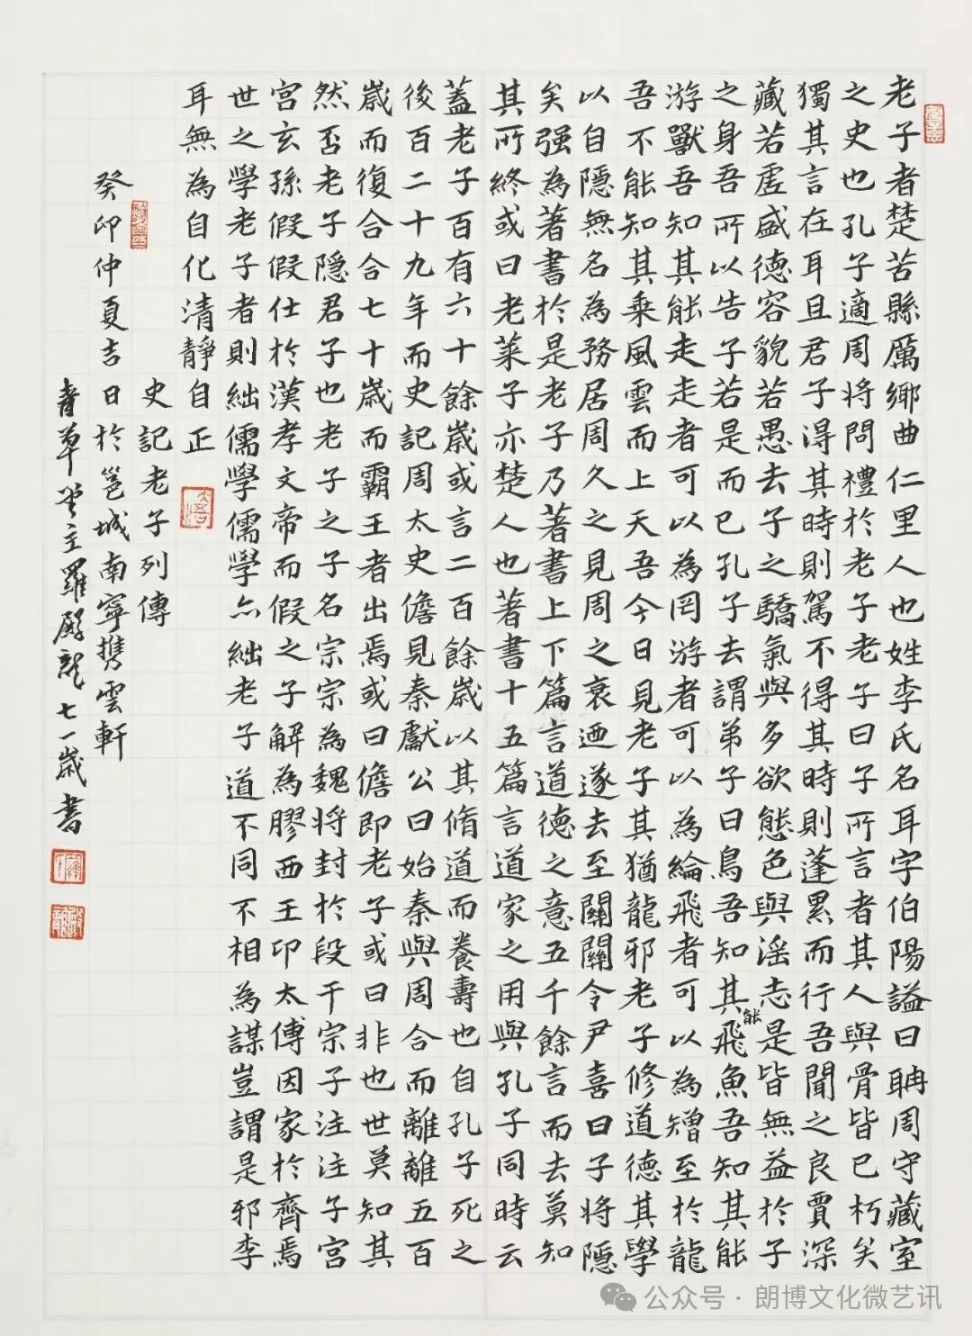 老子者楚苦縣厲鄉曲仁里人也姓李氏名耳字伯陽謚曰聃周守藏室
之史也孔子適周將問禮於老子老子曰子所言者其人與骨皆已朽矣
獨其言在耳且君子得其時則駕不得其時則蓬累而行吾聞之良賈深
藏若虛盛德容貌若愚去子之驕氣與多欲態色與淫志是皆無益於子
之身吾所以告子若是而已孔子去謂弟子曰鳥吾知其能飛魚吾知其能
游獸吾知其能走走者可以為罔游者可以為綸飛者可以為矰至於龍
吾不能知其乘風雲而上天吾今日見老子其猶龍邪老子修道德其學
以自隱無名為務居周久之見周之衰迺遂去至關關令尹喜曰子將隱
矣强為著書於是老子乃著書上下篇言道德之意五千餘言而去莫知
其所終或曰老萊子亦楚人也著書十五篇言道家之用與孔子同時云
蓋老子百有六十餘歲或言二百餘歲以其脩道而養壽也自孔子死之
後百二十九年而史記周太史儋見秦獻公曰始秦與周合而離離五百
歲而復合合七十歲而霸王者出焉或曰儋即老子或曰非也世莫知其
然否老子隱君子也老子之子名宗宗為魏將封於段干宗子注注子宮
宮玄孫假假仕於漢孝文帝而假之子解為膠西王卬太傅因家於齊焉
世之學老子者則絀儒學儒學亦絀老子道不同不相為謀豈謂是邪李
耳無為自化清靜自正
史記老子列傳
癸卯仲夏吉日於邕城南寧携雲軒
青草堂主羅殿龍七一歲書
公众号·朗博文化微艺讯